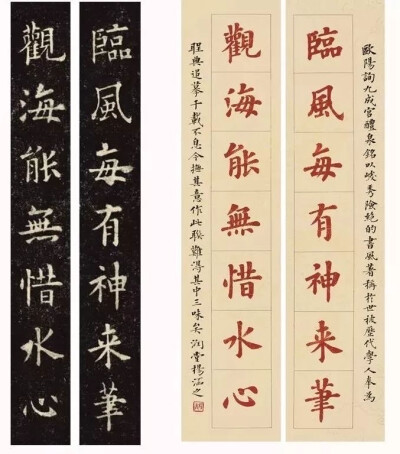 臨風每有神来筆
觀海能無惜水心
歐陽詢九成宮醴泉銘以峻秀險絕的書風著稱於世被歷代學人奉為
臨風每有神来筆
觀海能無惜水心
程典追摹千載不息今撫其意作此聯難得其中三味矣